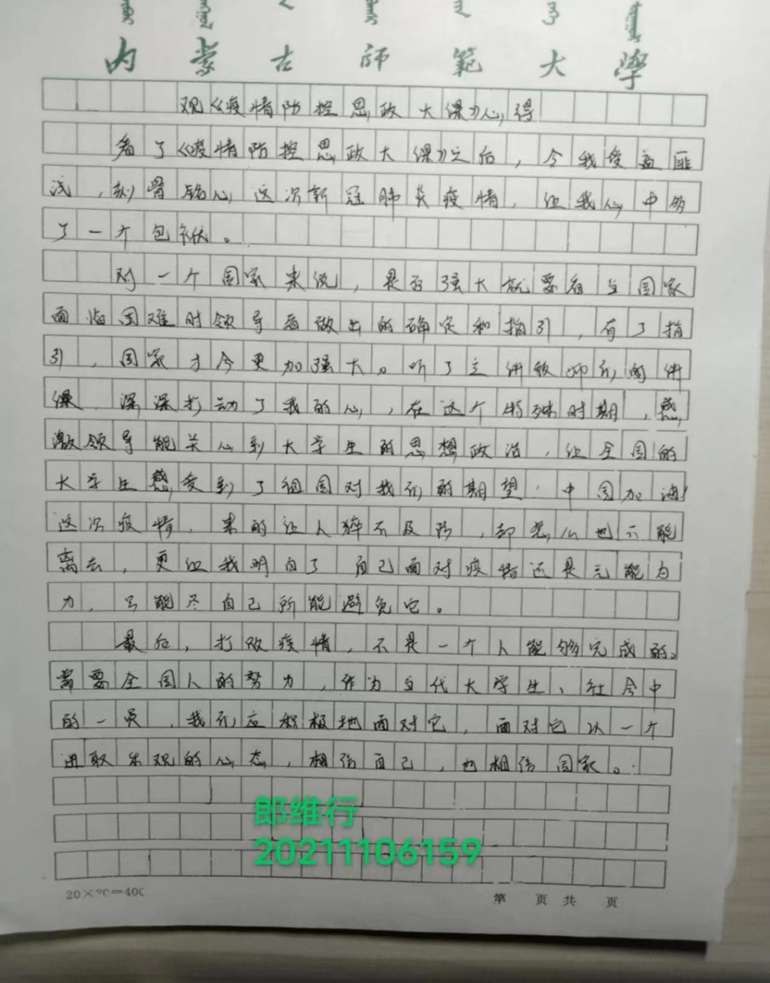 内蒙古师范大学
观《疫情防控思政大课》心得
看了《疫情防控思政大课》之后，令我受益匪
浅，刻骨铭心，这次新冠肺炎疫情，让我心中多
了一个包袱。
对一个国家来说，是否强大就要看当国家
面临困难时领导者做出的确定和指引，有了指
引，国家才会更加强大。听了主讲教师们的讲
课，深深打动了我的心，在这个特殊时期，感
激领导能关心到大学生的思想政治，让全国的
大学生感受到了祖国对我们的期望！中国加油！
这次疫情，来的让人猝不及防，却怎么也不能
离去，更让我明白了自己面对疫情还是无能为
力，只能尽自己所能避免它。
最后，打败疫情，不是一个人能够完成的。
需要全国人的努力，作为当代大学生、社会中
的一员，我们应积极地面对它，面对它以一个
进取乐观的心态，相信自己，也相信国家。
郎维行
20211106159
20×20=400
第 页 共 页